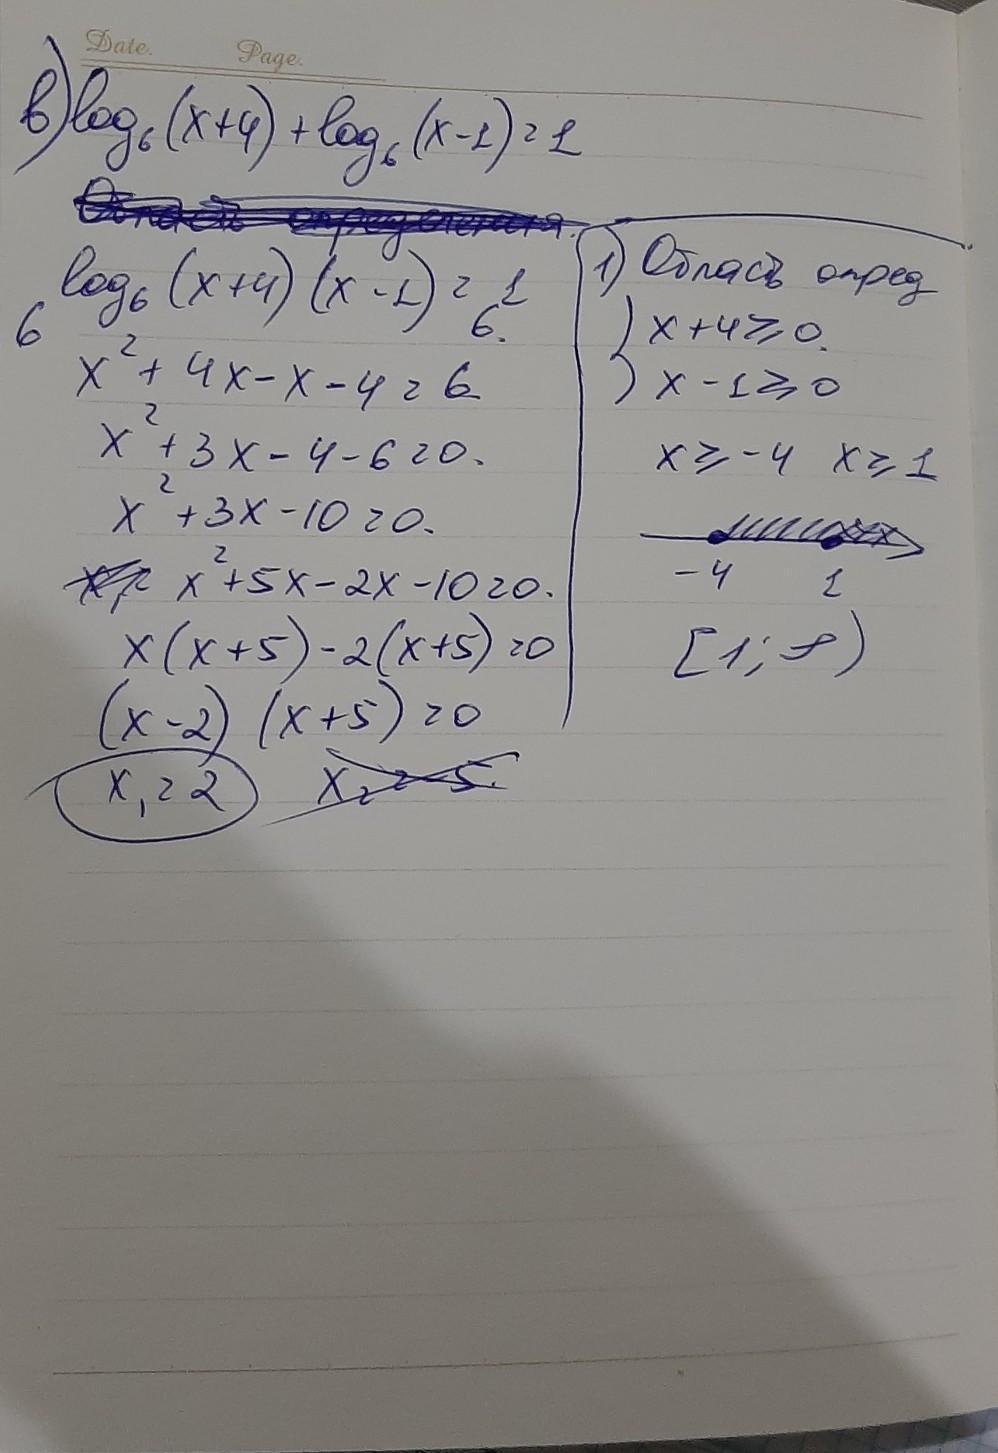 Date. Page.
в) log₆(x+4) + log₆(x-1) = 1
Область определения.
log₆(x+4)(x-1) = 1
6 6.
x² + 4x - x - 4 = 6
x² + 3x - 4 - 6 = 0.
x² + 3x - 10 = 0.
x² + 5x - 2x - 10 = 0.
x(x+5) - 2(x+5) = 0
(x-2) (x+5) = 0
x₁ = 2 x₂ = -5.
1) Обласъ опред
x + 4 ⩾ 0.
x - 1 ⩾ 0
x ⩾ -4 x ⩾ 1
-4 1
[1; )